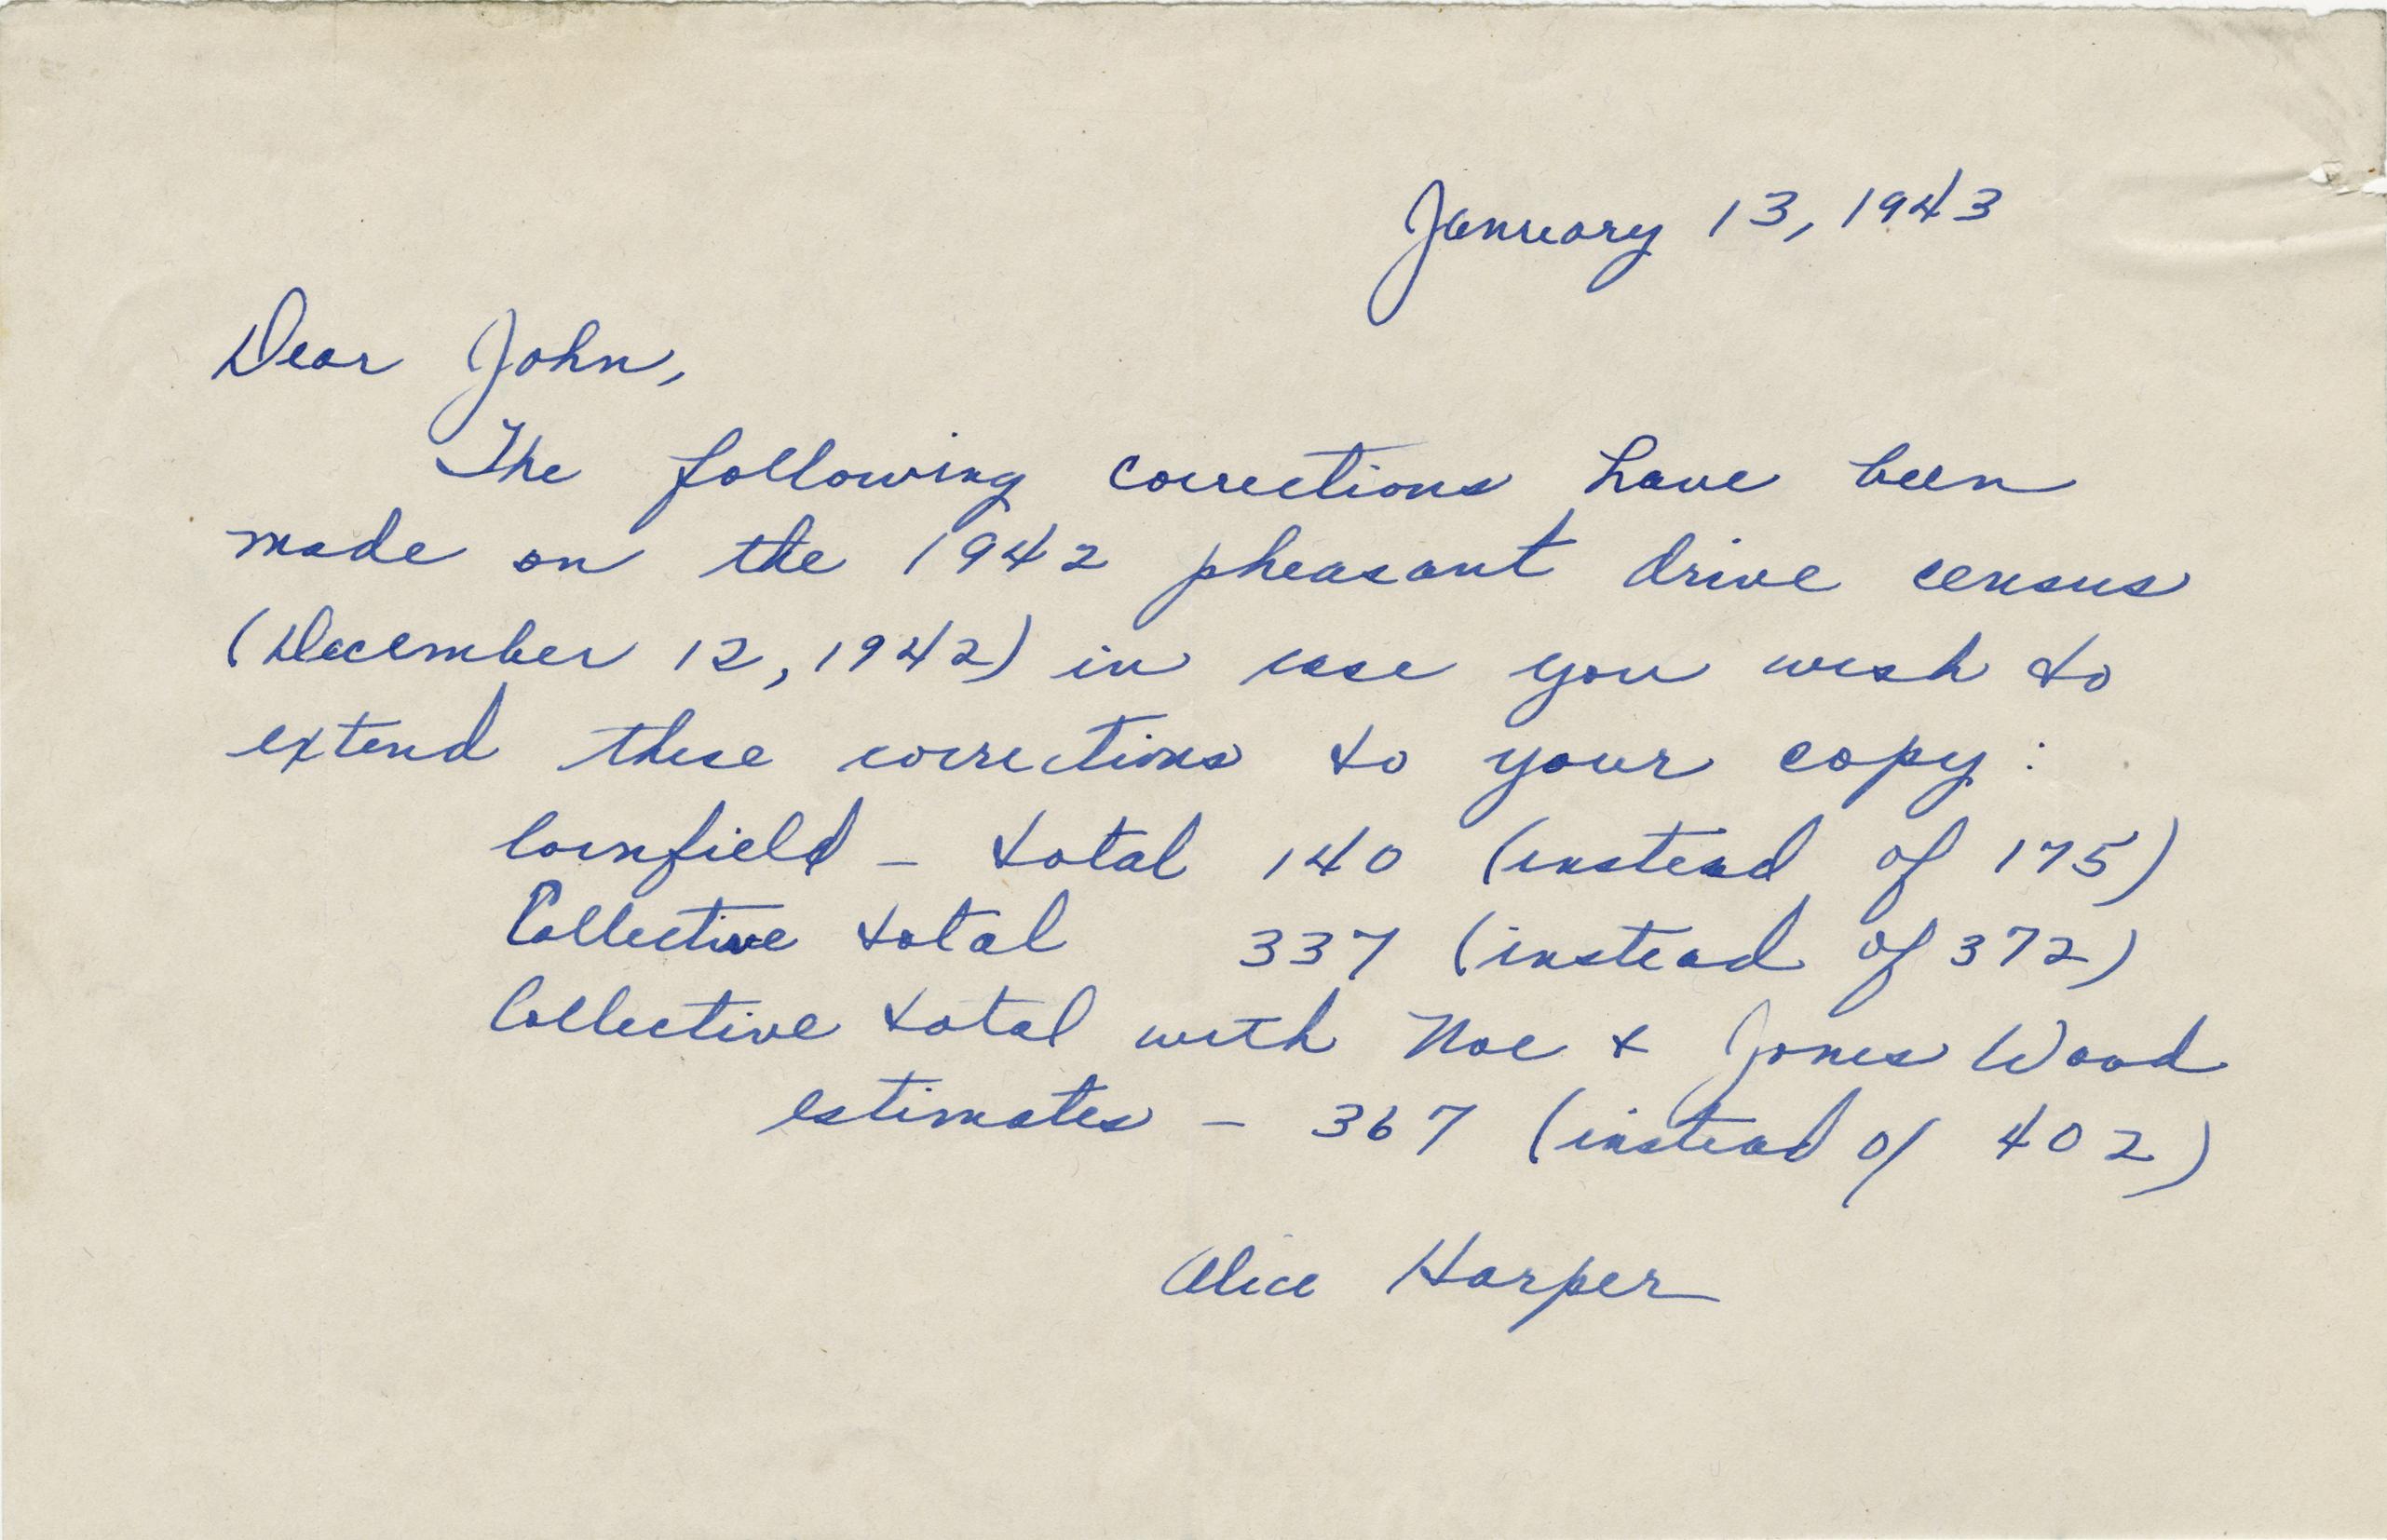 January 13, 1943
Dear John,
The following corrections have been
made on the 1942 pheasant drive census
(December 12, 1942) in case you wish to
extend these corrections to your copy:
Cornfield - total 140 (instead of 175)
Collective total 337 (instead of 372)
Collective total with Noe & Jones Wood
estimates - 367 (instead of 402)
Alice Harper